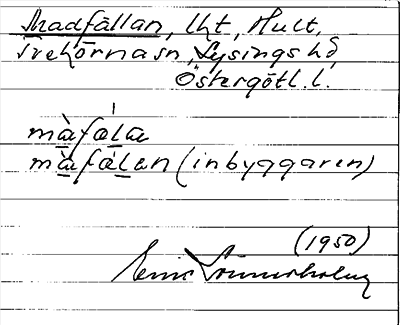 Madfällan, lht, Hult,
Trehörnasn, Lysings hd
Östergötl. l.
mа̀fα ́lα
mὰfα ́lαn (inbyggaren)
(1950)
Eric Linnerholm